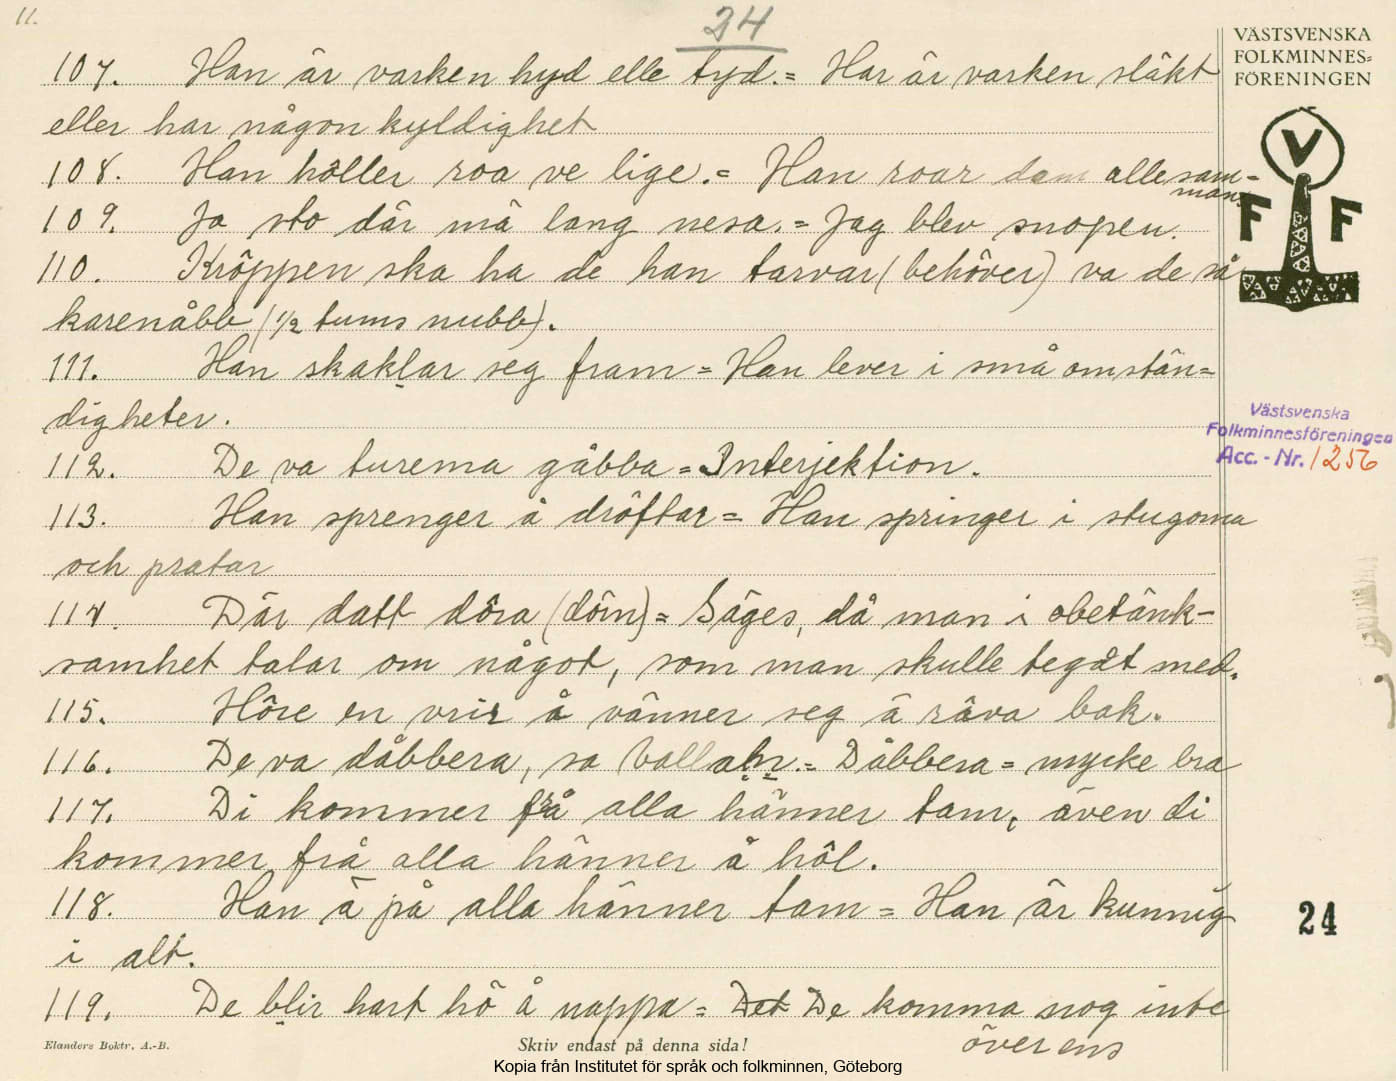 11.
24
VÄSTSVENSKA
FOLKMINNES=
FÖRENINGEN
V
F F
107. Han är varken hyd elle tyd.= Har är varken släkt
eller har någon kyldighet
108. Han höller roa ve lige.= Han roar dem alle sam-
man.
109. Ja sto där mä lang nesa.= Jag blev snopen.
110. Kröppen ska ha de han tarvar (behöver) va de så
karenåbb (1/2 tums nubb).
111. Han skaklar seg fram = Han lever i små omstän=
digheter.
Västsvenska
Folkminnesföreningen
Acc. - Nr. 1256
112. De va turema gåbba = Interjektion.
113. Han sprenger å dröftar = Han springer i stugorna
och pratar
114. Där datt döra (dörn) = Säges, då man i obetänk-
samhet talar om något, som man skulle tegat med.
115. Höre en vrir å vänner seg ä räva bak.
116. De va dåbbera, sa = Dåbbera = mycke bra
117. Di kommer frå alla hänner tam, även di
kommer frå alla hänner å höl.
118. Han ä på alla hänner tam = Han är kunnig
i alt.
24
119. De blir hart hö å nappa = Det De komma nog inte
överens
Elanders Boktr. A.-B.
Skriv endast på denna sida!
Kopia från Institutet för språk och folkminnen, Göteborg